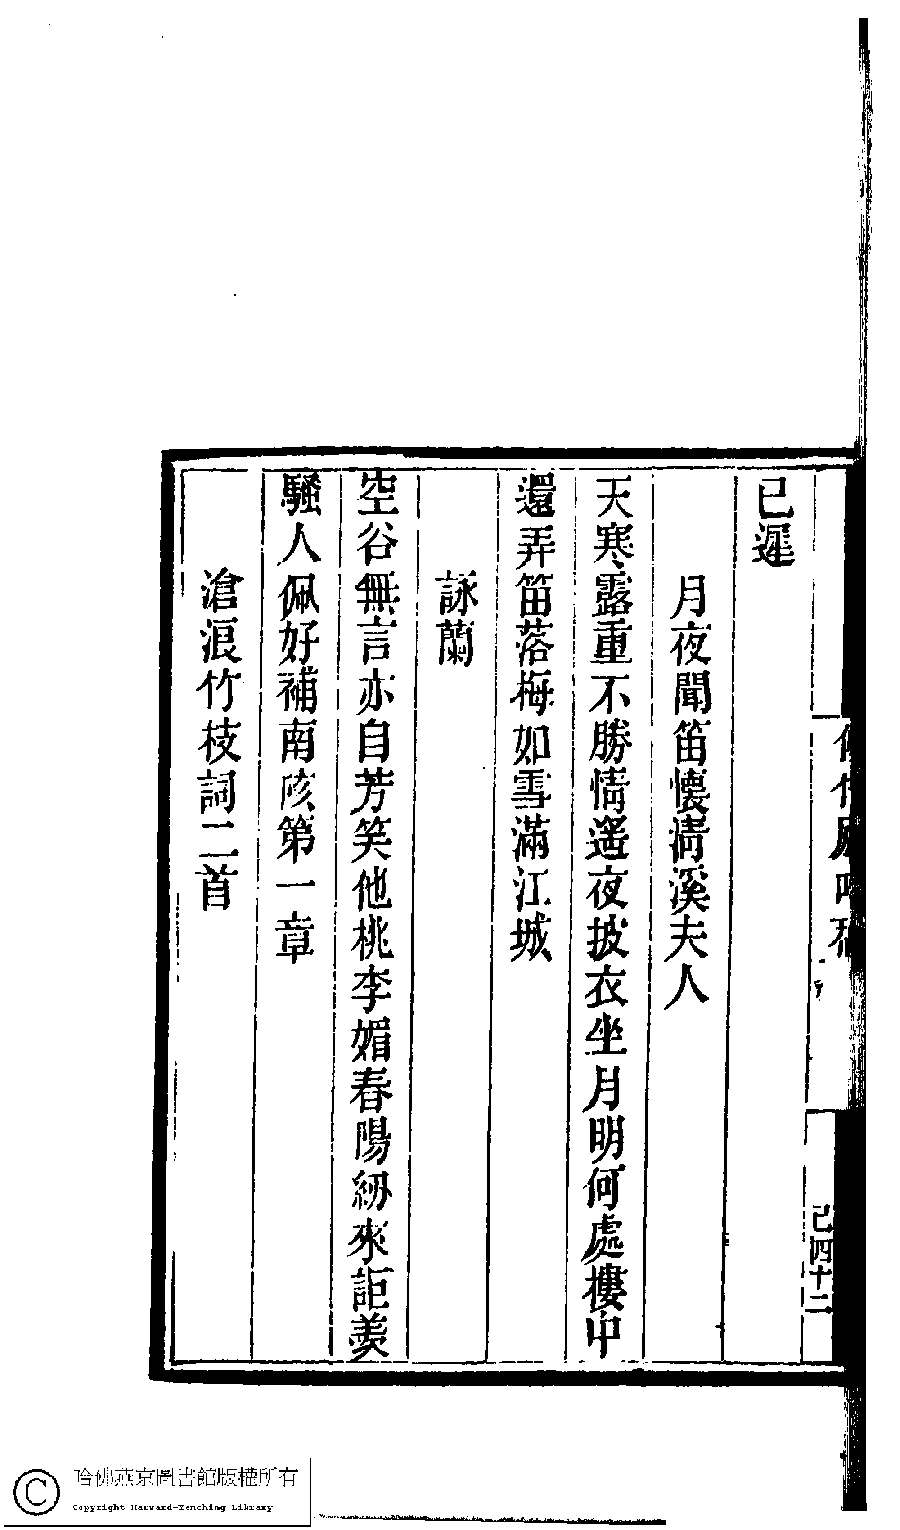 已遲
月夜聞笛懷清溪夫人
天寒露重不勝情遙夜披衣坐月明何處樓中
還弄笛落梅如雪滿江城
詠蘭
空谷無言亦自芳笑他桃李媚春陽紉來詎羨
騷人佩好補南陔第一章
滄浪竹枝詞二首
己四十二
哈佛燕京圖書館版權所有
Copyright Harvard-Yenching Library